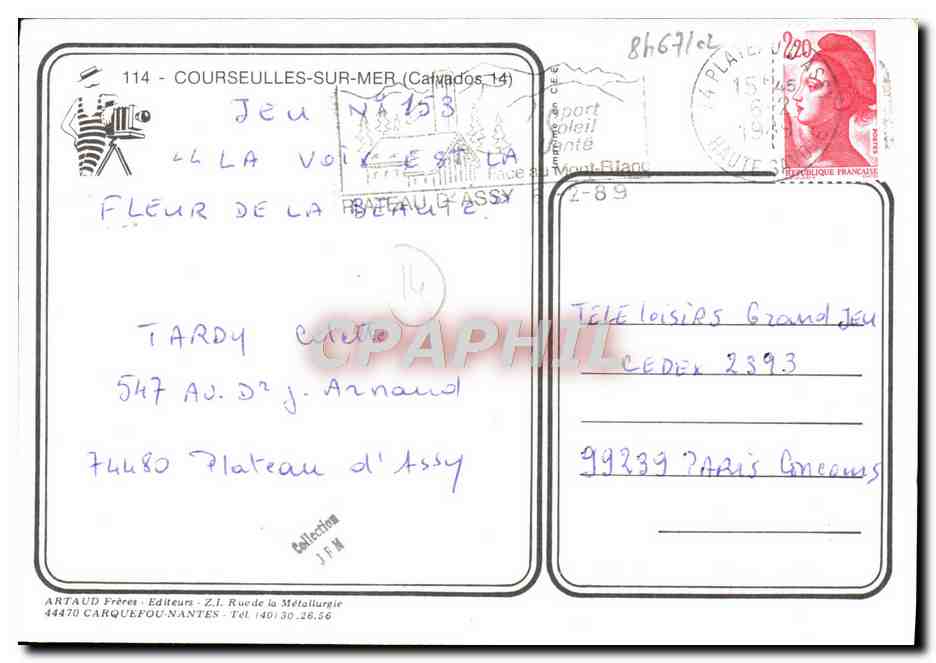 8467/02
114 - COURSEULLES-SUR-MER (Calvados 14)
JEU N° 153
" LA VOIX EST LA
FLEUR DE LA BEAUTE "
TARDY Colette
547 AV. Dr J. Arnaud
74480 Plateau d'Assy
14
Collection
J F N
ARTAUD Frères - Editeurs - Z.I. Rue de la Métallurgie
44470 CARQUEFOU-NANTES - Tél. (40) 30.26.56
Imprimé en CEE
Sport
Soleil
Santé
Face au Mont-Blanc
PLATEAU D'ASSY 6-2-89
74 PLATEAU D'ASSY
HAUTE SAVOIE
2,20
POSTES
REPUBLIQUE FRANÇAISE
TELE LOISIRS Grand JEU
CEDEX 2393
99239 PARIS Concours
CPAPHIL